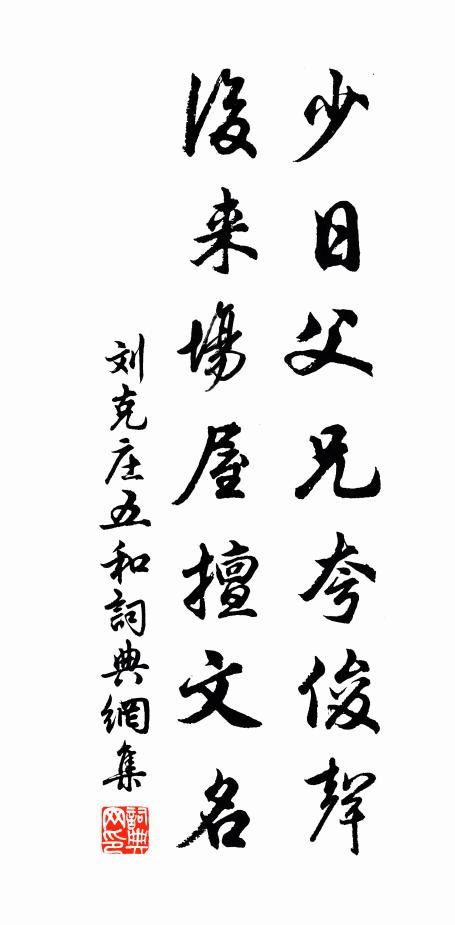 少日父兄夸俊聲
後来場屋擅文名
刘克庄五和詞典網集
詞典网印